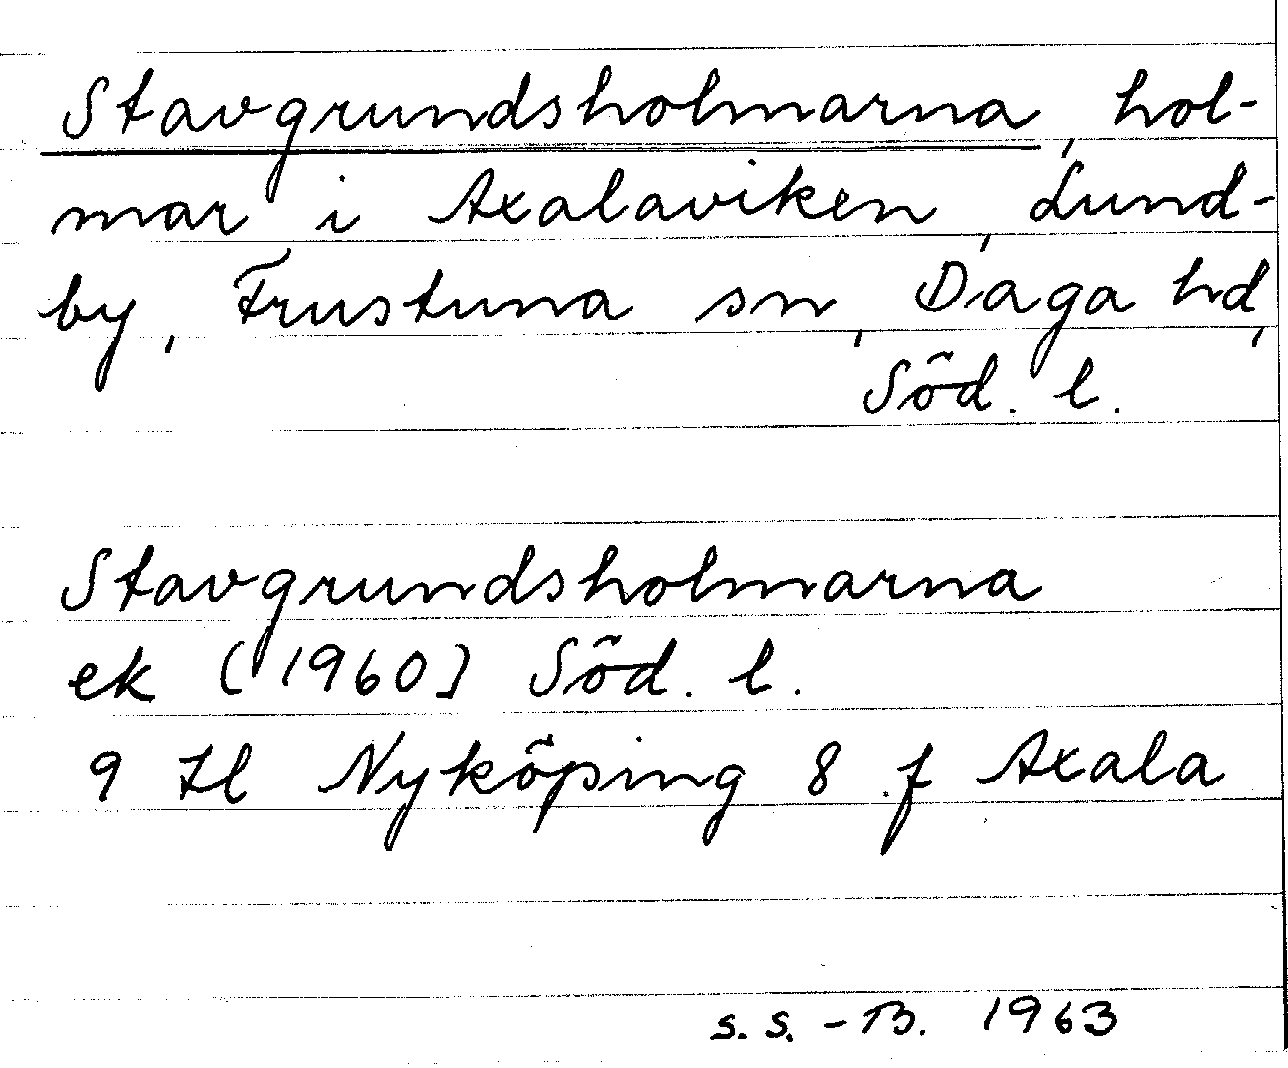 Stavgrundsholmarna, hol-
mar i Axalaviken, Lund-
by, Frustuna sn, Daga hd,
Söd. l.
Stavgrundsholmarna
ek (1960] Söd. l.
9 H Nyköping 8 f Axala
S.S.-B. 1963